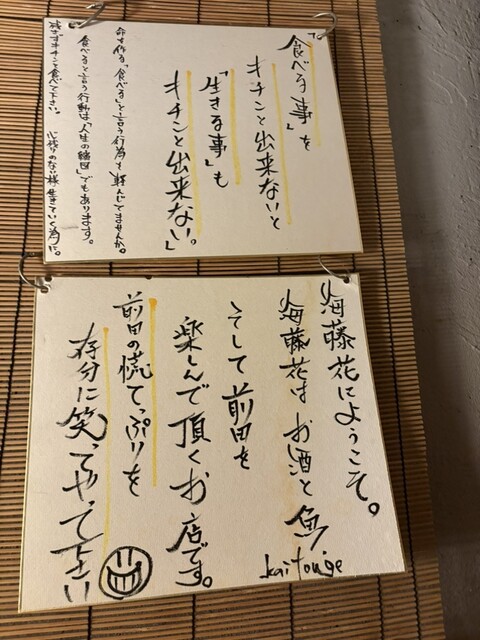 「食べる事」を
キチンと出来ないと
「生きる事」も
キチンと出来ない」。
命を作る「食べる」と言う行為を軽んじてませんか。
食べると言う行動は「人生の縮図」でもあります。
残さずキチンと食べて下さい。 心残りのない様生きていく為に。
海藤花にようこそ。
海藤花はお酒と魚
そして前田を
楽しんで頂くお店です。
前田の慌てっぷりを
存分に笑ってやって下さい
kaitouge